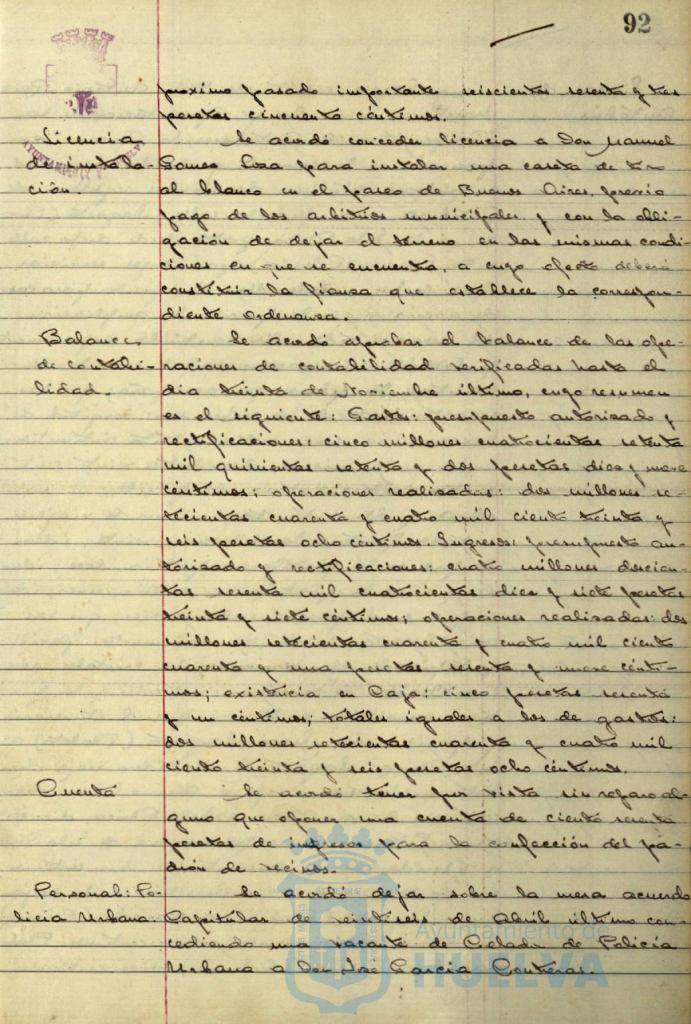 92
proximo pasado importante seiscientas sesenta y tres
pesetas cincuenta céntimos.
Licencia de instalación.
Se acordó conceder licencia a Don Manuel
Gomez Loza para instalar una caseta de tiro
al blanco en el paseo de Buenos Aires, previo
pago de los arbitrios municipales y con la obli-
gación de dejar el terreno en las mismas condi-
ciones en que se encuentra, a cuyo efecto deberá
constituir la fianza que establece la correspon-
diente Ordenanza.
Balance de contabilidad.
Se acordó aprobar el balance de las ope-
raciones de contabilidad verificadas hasta el
dia treinta de Noviembre último, cuyo resumen
es el siguiente: Gastos: presupuesto autorizado y
rectificaciones: cinco millones cuatrocientas setenta
mil quinientas setenta y dos pesetas diez y nueve
céntimos; operaciones realizadas: dos millones se-
tecientas cuarenta y cuatro mil ciento treinta y
seis pesetas ocho céntimos. Ingresos: presupuesto au-
torizado y rectificaciones: cuatro millones doscien-
tas sesenta mil cuatrocientas diez y siete pesetas
treinta y siete céntimos; operaciones realizadas: dos
millones setecientas cuarenta y cuatro mil ciento
cuarenta y una pesetas sesenta y nueve cénti-
mos; existencia en Caja: cinco pesetas sesenta
y un céntimos; totales iguales a los de gastos:
dos millones setecientas cuarenta y cuatro mil
ciento treinta y seis pesetas ocho céntimos.
Cuenta
Se acordó tener por vista sin reparo al-
guno que oponer una cuenta de ciento sesenta
pesetas de impresos para la confección del pa-
drón de vecinos.
Personal: Policia Urbana.
Se acordó dejar sobre la mesa acuerdo
Capitular de veintiseis de Abril último con-
cediendo una vacante de Celador de Policia
Urbana a Don José Garcia Contreras.
Ayuntamiento de
HUELVA